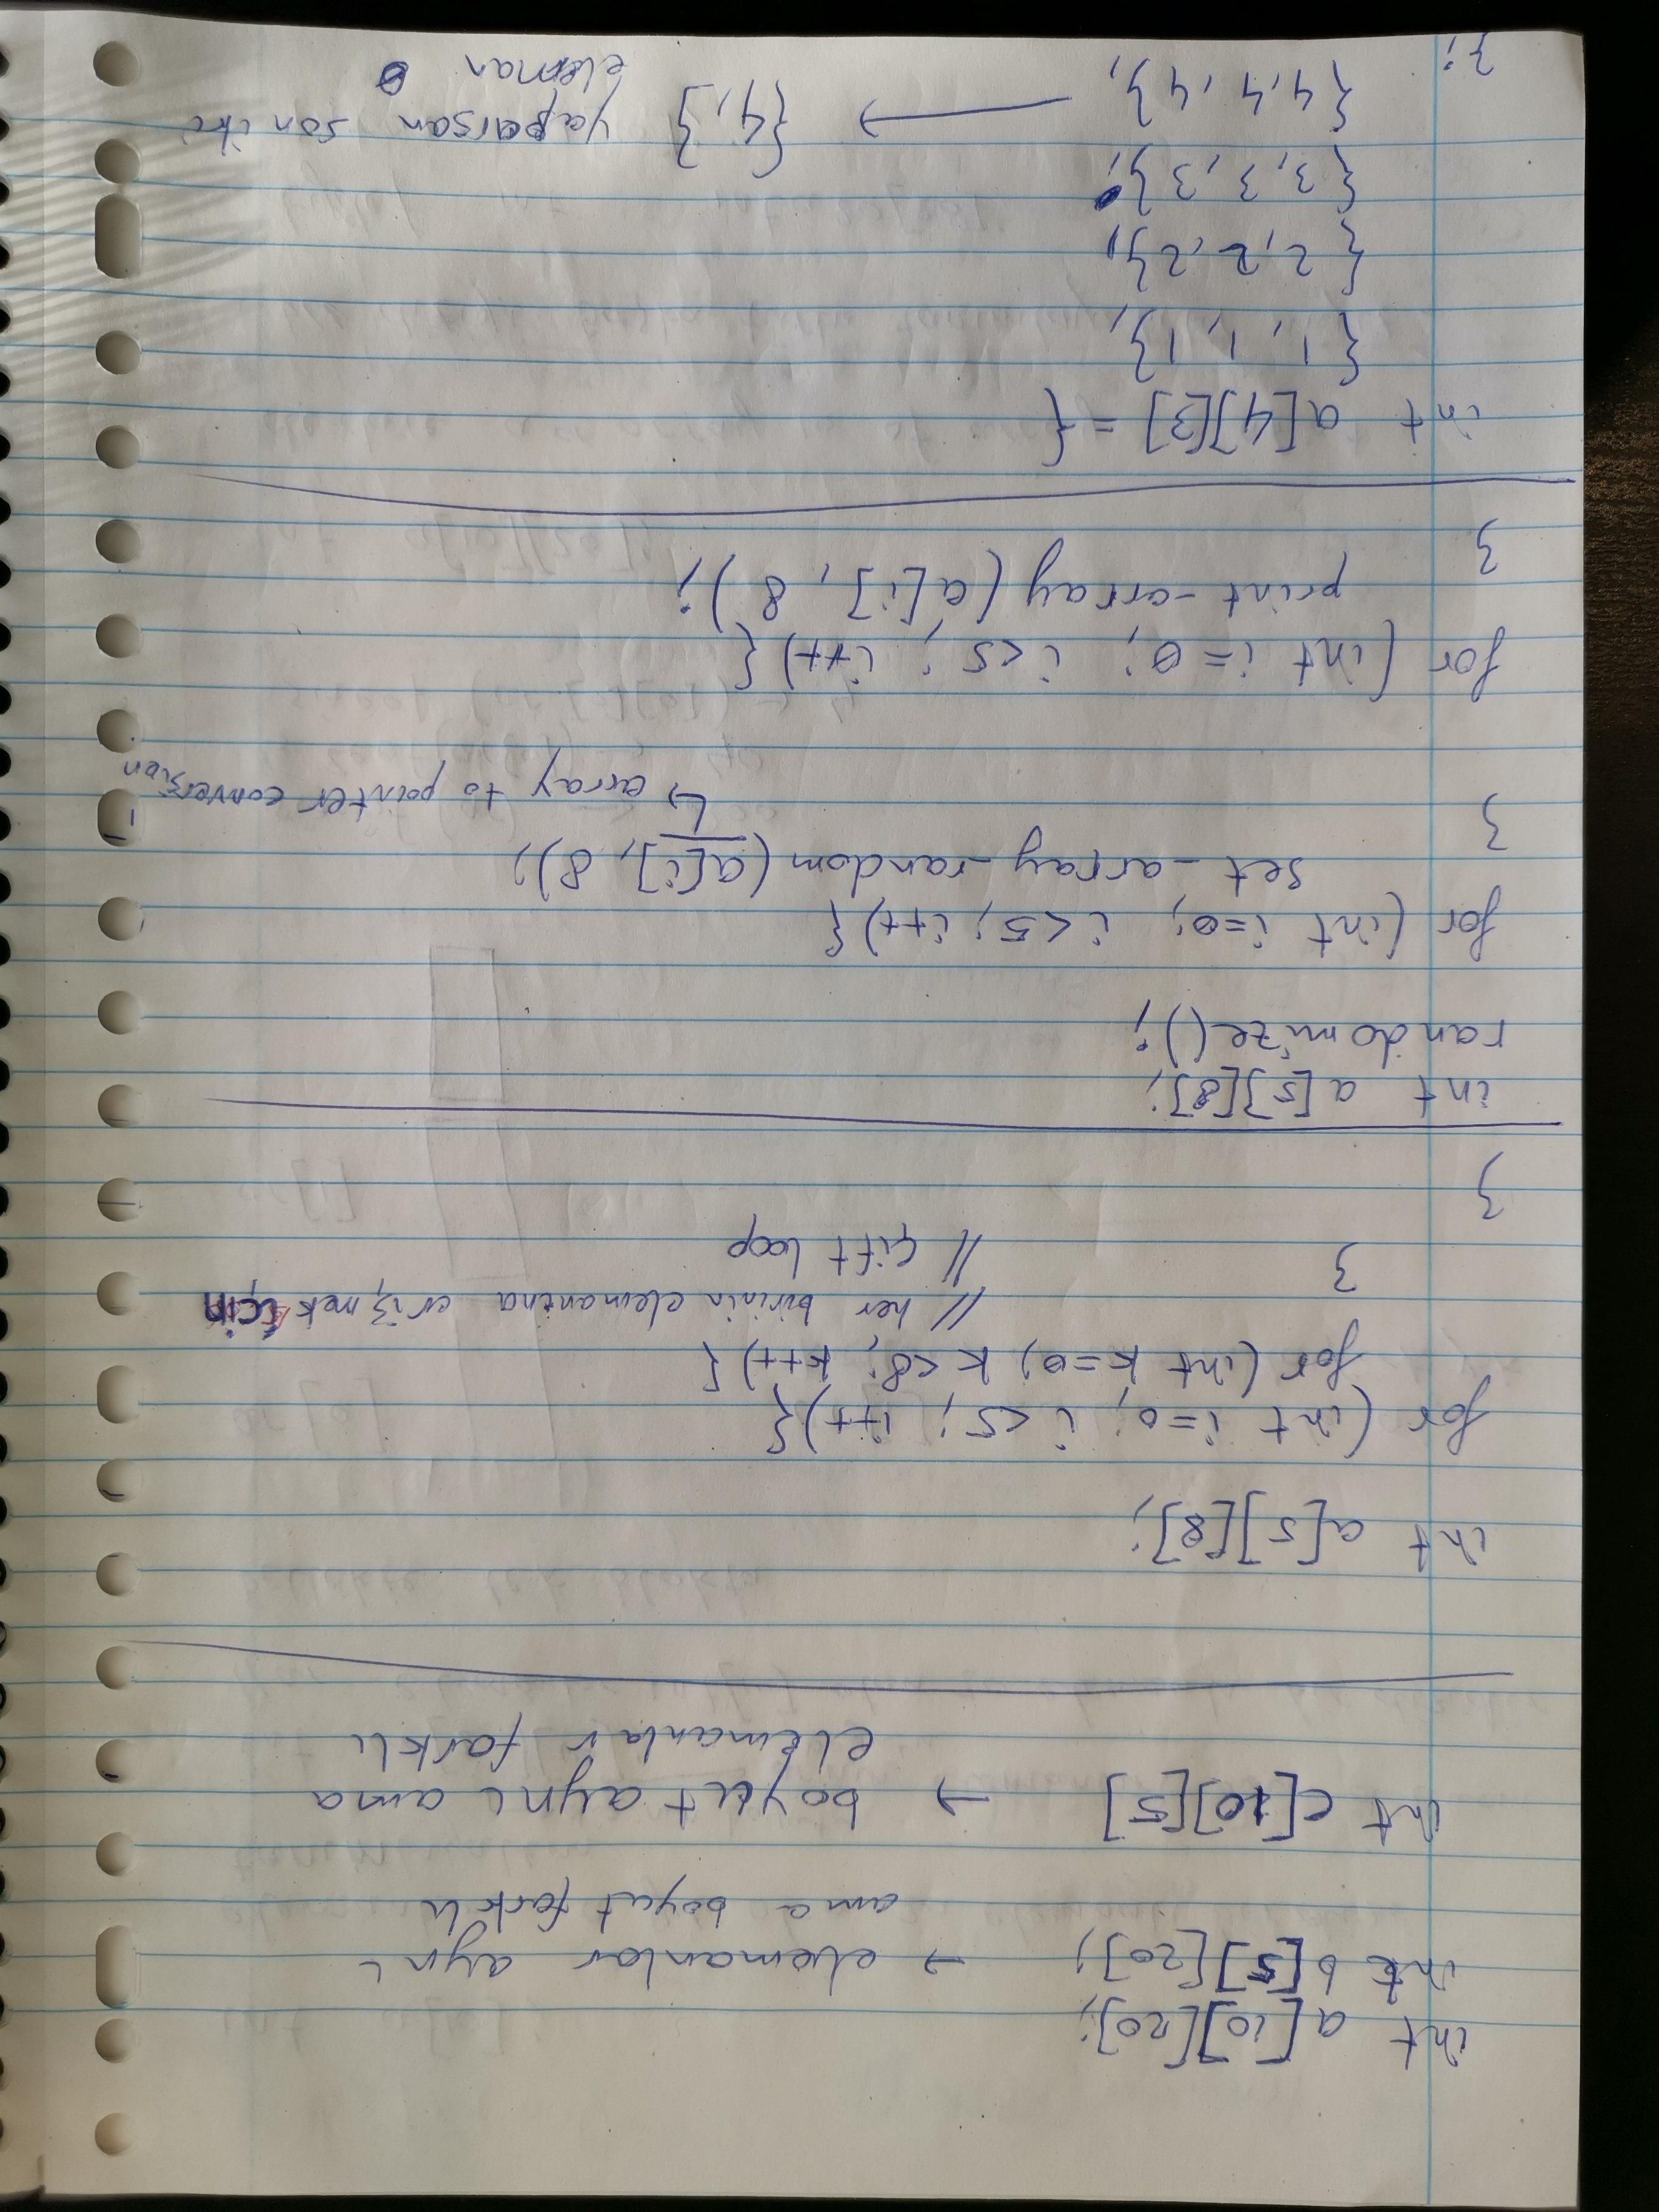 int a[10][20];
int b[5][20]; → elemanlar aynı
ama boyut farklı
int c[10][5] → boyut aynı ama
elemanlar farklı
int a[5][8];
for (int i=0; i<5; i++){
for (int k=0; k<8; k++) {
// her birinin elemanına erişmek için
} // çift loop
}
int a[5][8];
randomize();
for (int i=0; i<5; i++){
set_array_random(a[i], 8);
}
↳ array to pointer conversion
for (int i=0; i<5; i++){
print-array(a[i], 8);
}
int a[4][3] = {
{1, 1, 1},
{2,2,2},
{3,3,3},
{4,4,4}, → {4,} yaparsan son iki
eleman 0
};